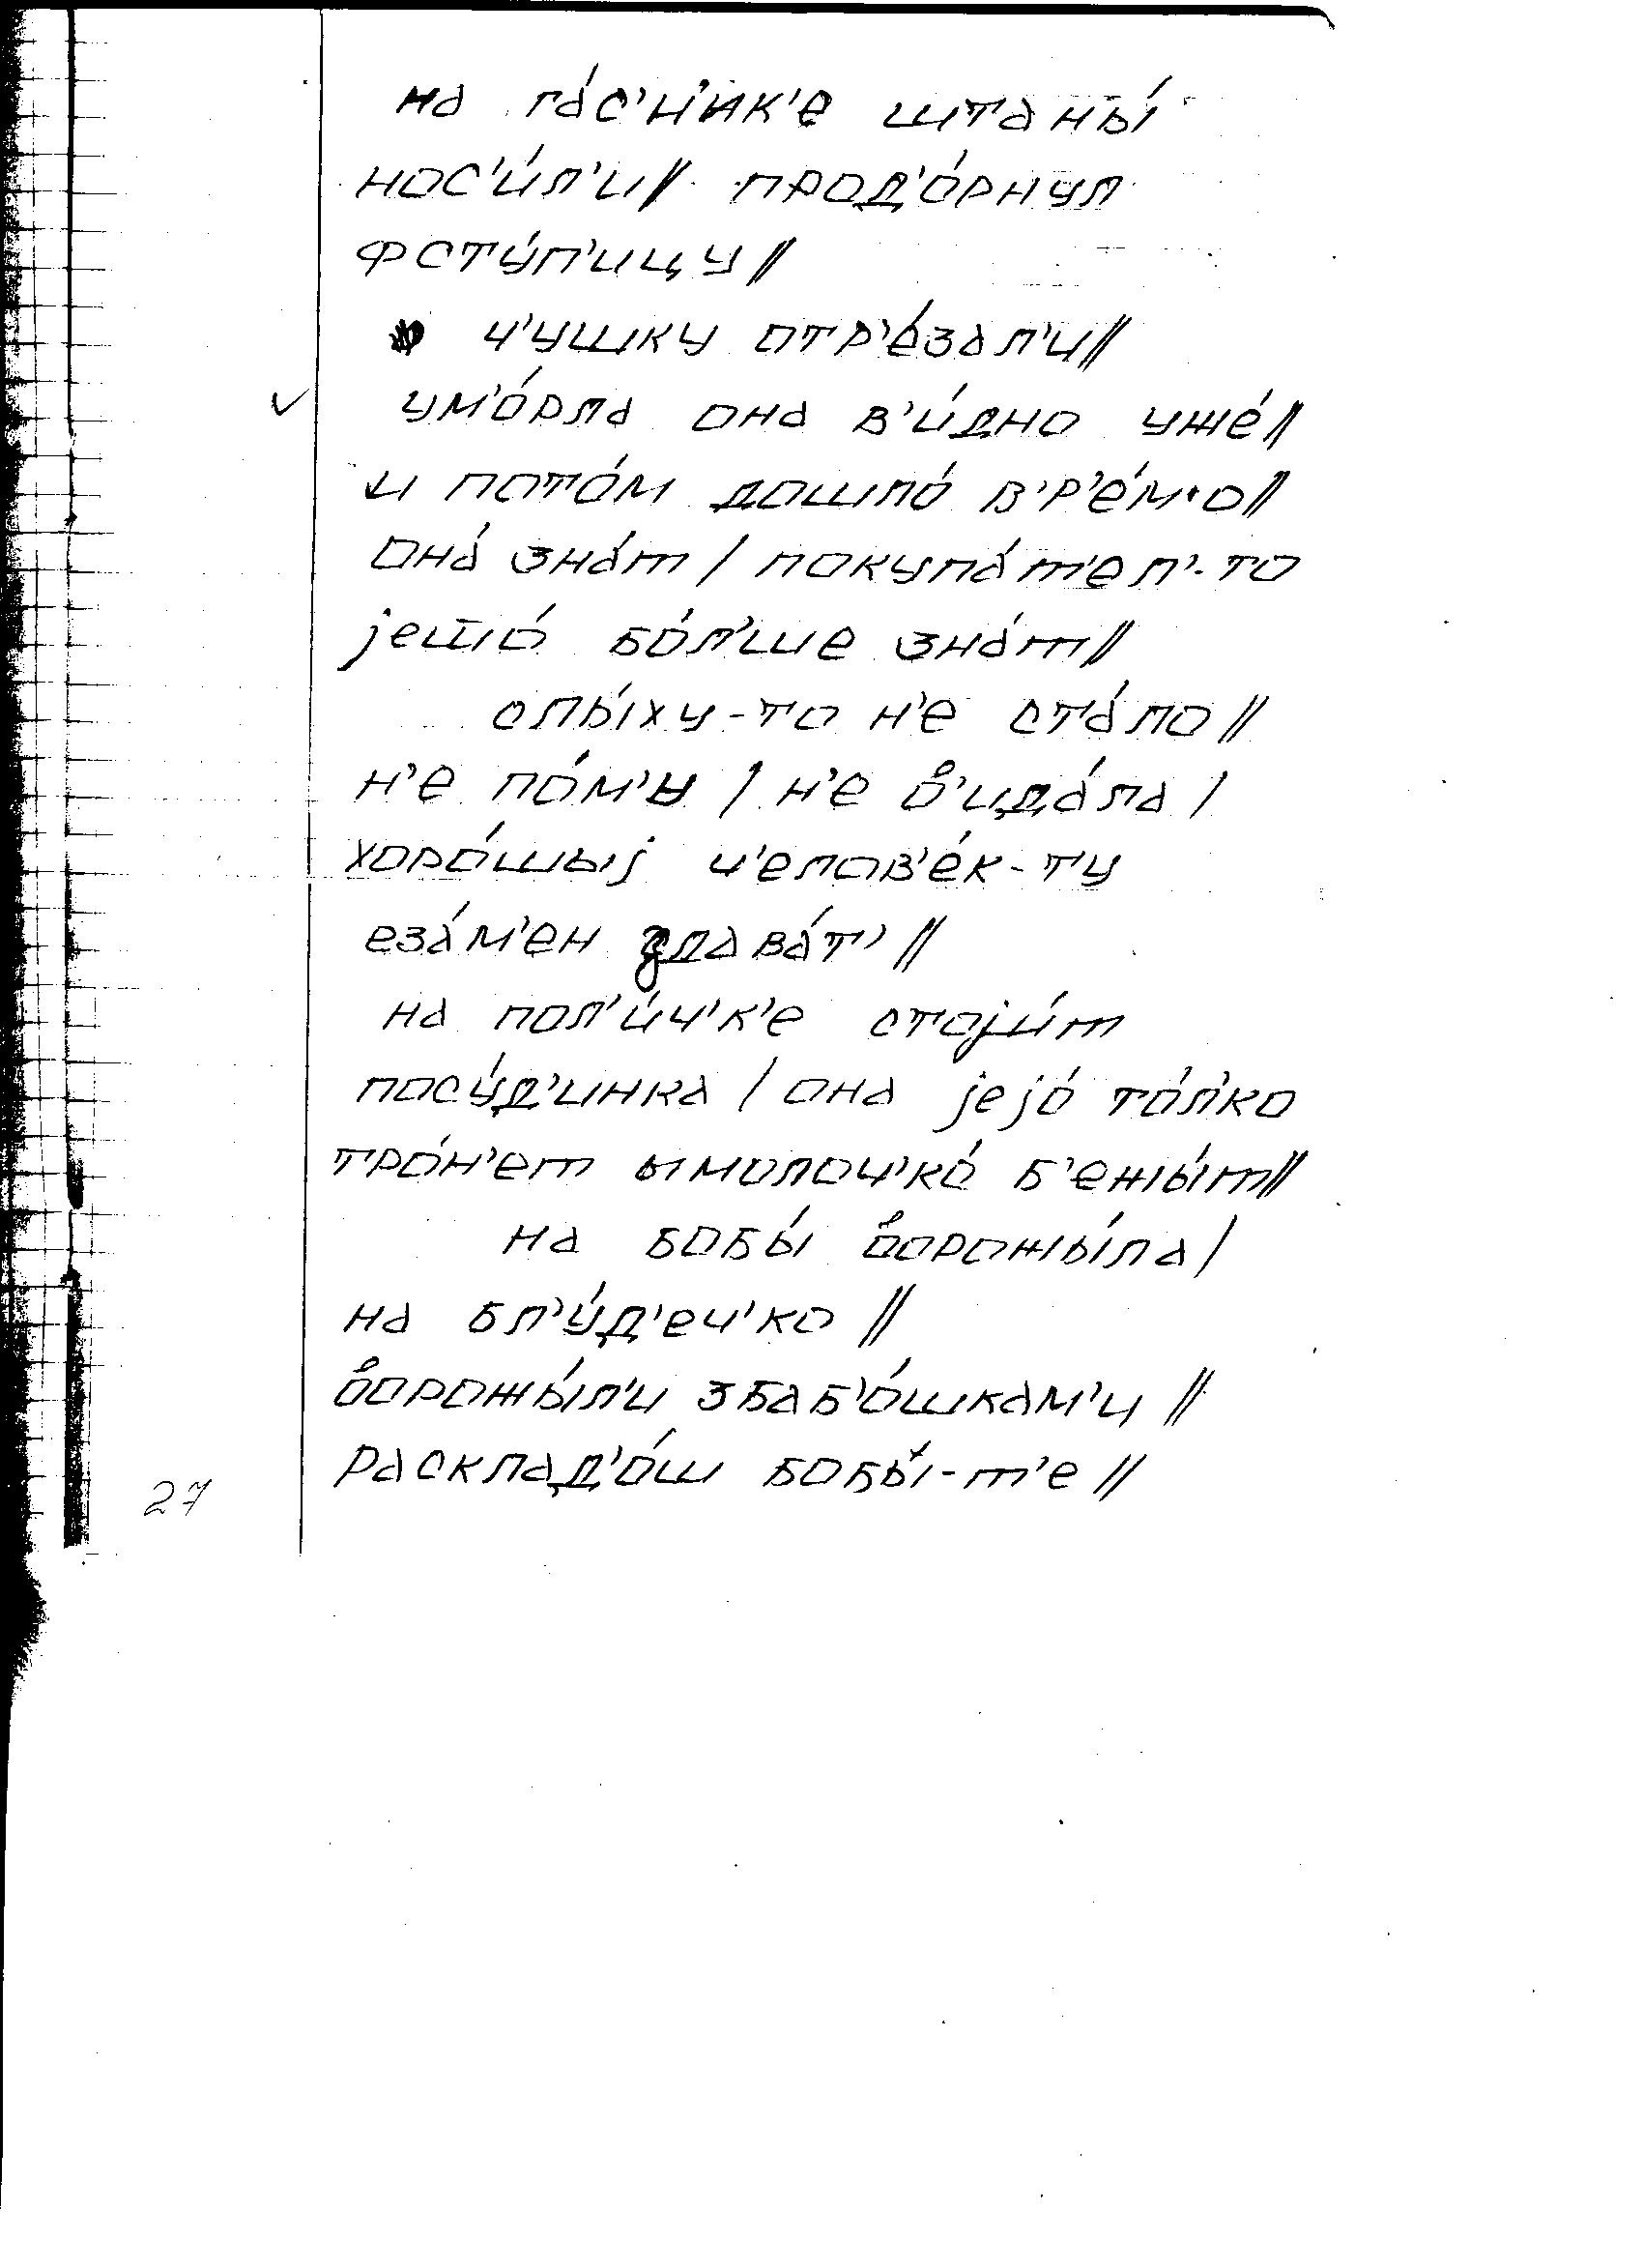 на га́с'н'ик'е штаны́
нос'и́л'и// прод'о́рнул
фсту́п'ицу//
ч'ушку отр'е́зал'и//
ум'о́рла она в'и́дно уже́//
и пото́м дошло́ в'р'е́м'о//
она́ зна́т / покупа́т'ел'-то
jешо́ бо́л'ше зна́т//
слы́ху-то н'е ста́ло//
н'е по́м'н / н'е в'ида́ла /
хоро́шыj ч'елов'е́к-ту
еза́м'ен здава́т' //
на пол'и́ч'к'е стоjи́т
посу́д'инка / она jеjо́ то́л'ко
тро́н'ет ымолоч'ко́ б'ежы́т//
на бобы́ ворожы́ла/
на бл'у́д'еч'ко //
ворожы́л'и збаб'о́шкам'и //
расклад'о́ш бобы́-т'е //
27